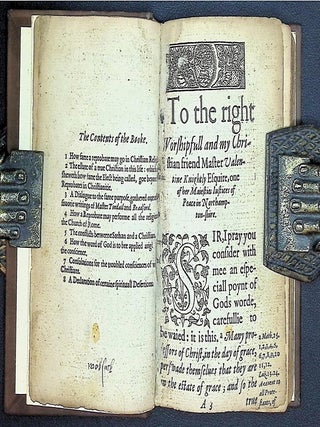 The Contents of the Booke.
1 How farre a reprobate may go in Christian Religi
2 The estate of a true Christian in this life : which
sheweth how farre the Elect being called, goe beyond
Reprobates in Christianitie.
3 A Dialogue to the same purpose, gathered out of
sauorie writings of Master Tindall and Bradford.
4 How a Reprobate may performe all the religion
the Church of Rome.
5 The conflicts betweene Sathan and a Christian.
6 How the word of God is to be applied aright
the conscience.
7 Consolations for the troubled consciences of
Christians.
8 A Declaration of certaine spirituall Desertions.
To the right
Worshipfull and my Chri-
stian friend Master Valen-
tine Knightly Esquire, one
of her Maiesties Iustices of
Peace in Northamp-
ton-shire.
SIR, I pray you
consider with
mee an espe-
ciall poynt of
Gods worde,
carefullie to
be waied : it is this, Many pro-
fessors of Christ, in the day of grace,
perswade themselues that they are
in the estate of grace; and so the
A 3
true